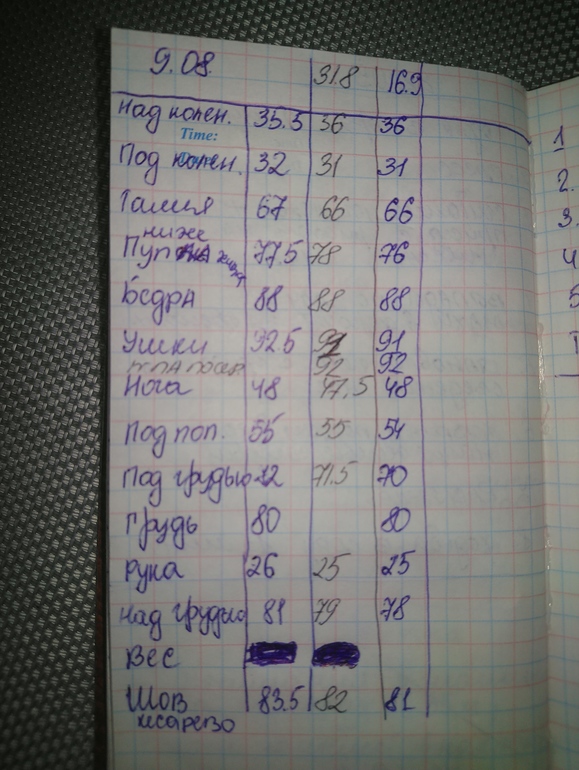 9.08. 31.8 16.9
над колен. 35.5 36 36
Time:
Под колен. 32 31 31
Талия 67 66 66
ниже
Пуп 77.5 78 76
Бёдра 88 88 88
Ушки 92.5 91 91
92 92
Нога 48 47.5 48
Под поп. 55 55 54
Под грудью 72 71.5 70
Грудь 80 80
рука 26 25 25
над грудью 81 79 78
Вес
Шов 83.5 82 81
кесарево
1
2.
3.
4
5